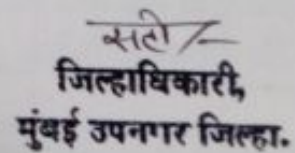 सही/-
जिल्हाधिकारी,
मुंबई उपनगर जिल्हा.